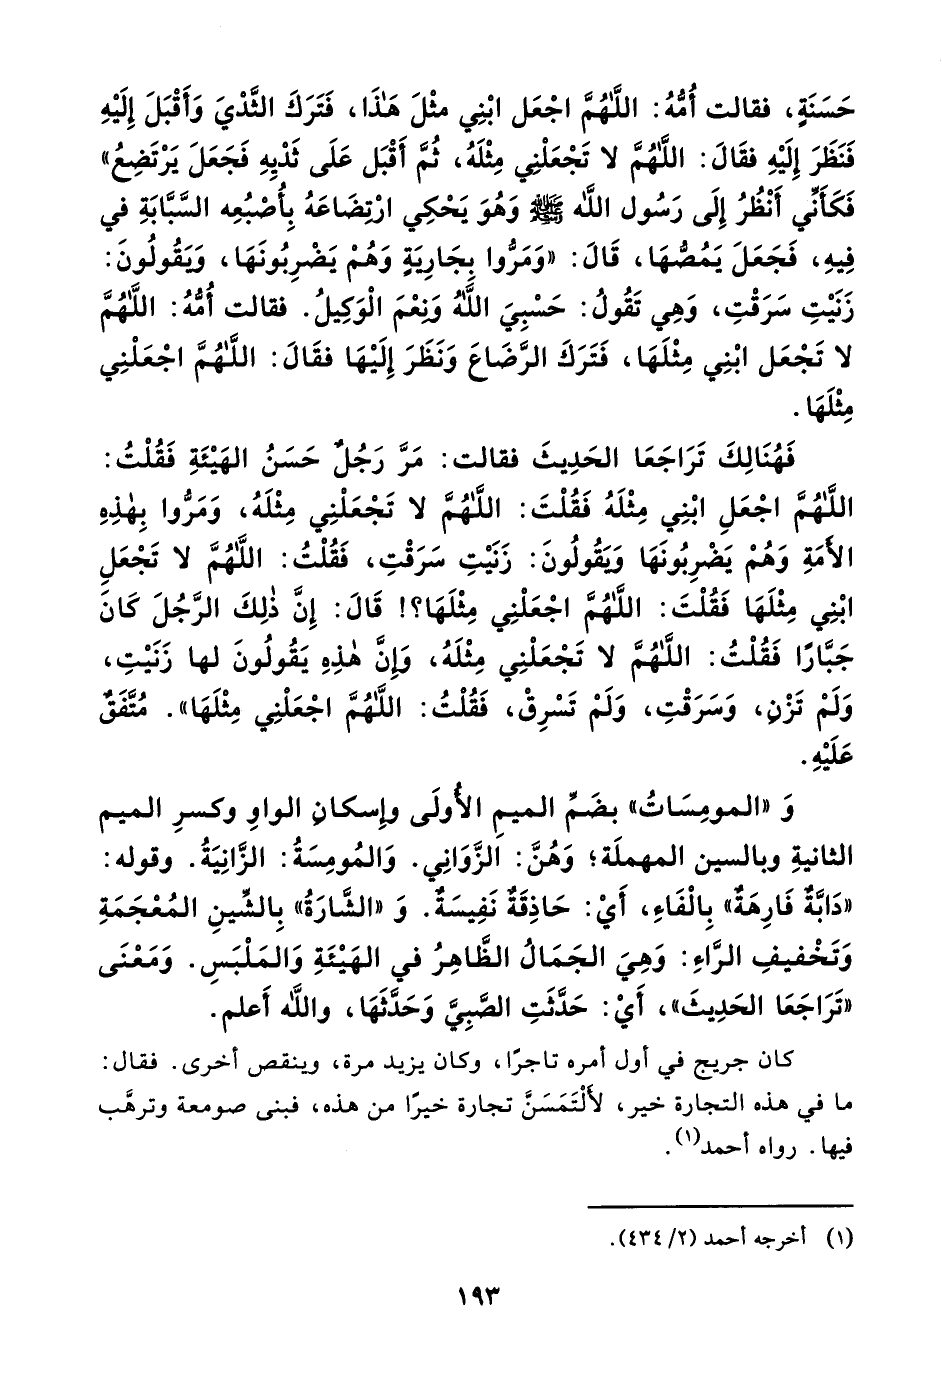 حَسَنَةٍ، فقالت أُمُّهُ: اللَّهُمَّ اجْعَل ابْنِي مثْلَ هَذَا، فَتَرَكَ الثَّدْيَ وَأَقْبَلَ إِلَيْهِ
فَنَظَرَ إِلَيْهِ فقَالَ: اللَّهُمَّ لا تَجْعَلْنِي مِثْلَهُ، ثُمَّ أَقْبَل عَلَى ثَدْيِهِ فَجَعَلَ يَرْتَضِعُ»
فَكَأَنِّي أَنْظُرُ إِلَى رَسُول اللَّه ﷺ وَهُوَ يَحْكِي ارْتِضَاعَهُ بِأُصْبُعِه السَّبَّابَةِ في
فِيهِ، فَجَعَلَ يَمُصُّهَا، قَالَ: «وَمَرُّوا بِجَارِيَةٍ وَهُمْ يَضْرِبُونَهَا، وَيَقُولُونَ:
زَنَيْتِ سَرَقْتِ، وَهِي تَقُولُ: حَسْبِيَ اللَّهُ وَنِعْمَ الْوَكِيلُ. فقالت أُمُّهُ: اللَّهُمَّ
لا تَجْعَل ابْنِي مِثْلَهَا، فَتَرَكَ الرَّضَاعَ وَنَظَرَ إِلَيْهَا فقَالَ: اللَّهُمَّ اجْعَلْنِي
مِثْلَهَا.
فَهُنَالِكَ تَرَاجَعَا الحَدِيثَ فقالت: مَرَّ رَجُلٌ حَسَنُ الهَيْئَةِ فَقُلْتُ:
اللَّهُمَّ اجْعَلِ ابْنِي مِثْلَهُ فَقُلْتَ: اللَّهُمَّ لا تَجْعَلْنِي مِثْلَهُ، وَمَرُّوا بِهٰذِهِ
الأَمَةِ وَهُمْ يَضْرِبُونَهَا وَيَقُولُونَ: زَنَيْتِ سَرَقْتِ، فَقُلْتُ: اللَّهُمَّ لا تَجْعَلِ
ابْنِي مِثْلَهَا فَقُلْتَ: اللَّهُمَّ اجْعَلْنِي مِثْلَهَا؟! قَالَ: إِنَّ ذٰلِكَ الرَّجُلَ كَانَ
جَبَّارًا فَقُلْتُ: اللَّهُمَّ لا تَجْعَلْنِي مِثْلَهُ، وَإِنَّ هٰذِهِ يَقُولُونَ لها زَنَيْتِ،
وَلَمْ تَزْنِ، وَسَرَقْتِ، وَلَمْ تَسْرِقْ، فَقُلْتُ: اللَّهُمَّ اجْعَلْنِي مِثْلَهَا». مُتَّفَقٌ
عَلَيْهِ.
وَ «المومِسَاتُ» بضَمِّ الميمِ الأُولَى وإسكانِ الواوِ وكسرِ الميم
الثانيةِ وبالسين المهملَة؛ وَهُنَّ: الزَّوَانِي. وَالمُومِسَةُ: الزَّانِيَةُ. وقوله:
«دَابَّةٌ فَارِهَةٌ» بِالْفَاءِ، أَيْ: حَاذِقَةٌ نَفِيسَةٌ. وَ «الشَّارَةُ» بِالشِّينِ المُعْجَمَةِ
وَتَخْفيفِ الرَّاءِ: وَهِيَ الجَمَالُ الظَّاهِرُ في الهَيْئَةِ وَالمَلْبَسِ. وَمَعْنَى
«تَرَاجَعَا الحَدِيثَ»، أَيْ: حَدَّثَتِ الصَّبِيَّ وَحَدَّثَهَا، واللَّه أَعلم.
كان جريج في أول أمره تاجرًا، وكان يزيد مرة، وينقص أخرى. فقال:
ما في هذه التجارة خير، لأَلْتَمَسَنَّ تجارة خيرًا من هذه، فبنى صومعة وترهَّب
فيها. رواه أحمد(١).
(١) أخرجه أحمد (٢/ ٤٣٤).
١٩٣